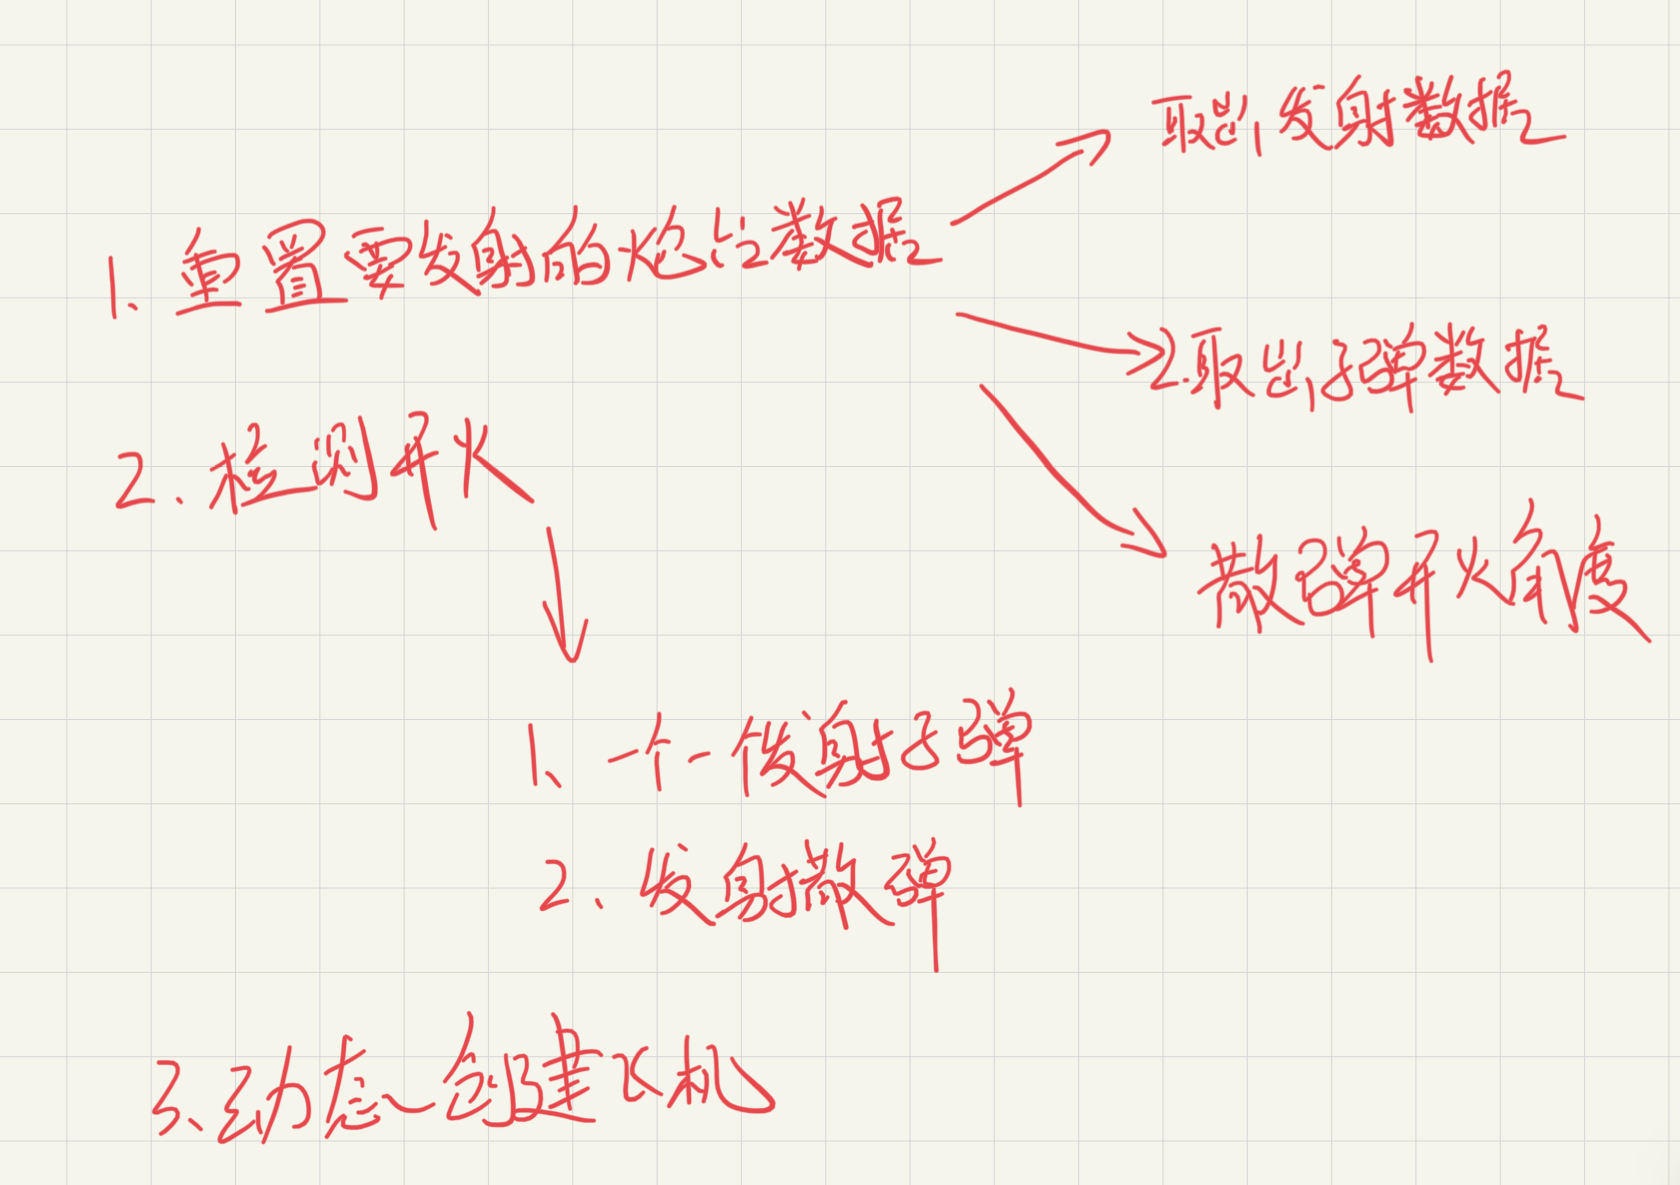 1. 重置要发射的炮位数据
取出发射数据
2.取出子弹数据
散弹开火角度
2. 检测开火
1、一个一个发射子弹
2、发射散弹
3、动态创建飞机